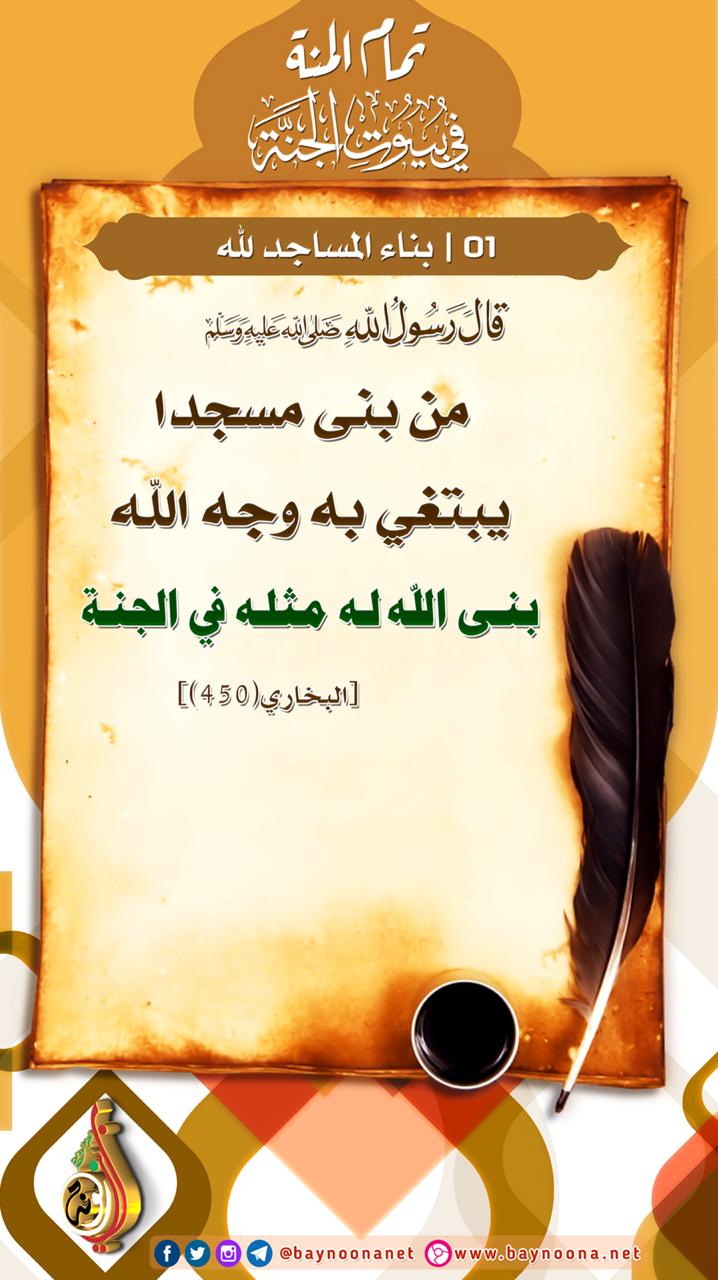 تمام المنة
في بُيُوتِ الجَنَّةِ
01 | بناء المساجد لله
قَالَ رَسُولُ اللهِ صَلَّى اللهُ عَلَيْهِ وَسَلَّمَ
من بنى مسجدا
يبتغي به وجه الله
بنى الله له مثله في الجنة
[البخاري(450)]
@baynoonanet www.baynoona.net